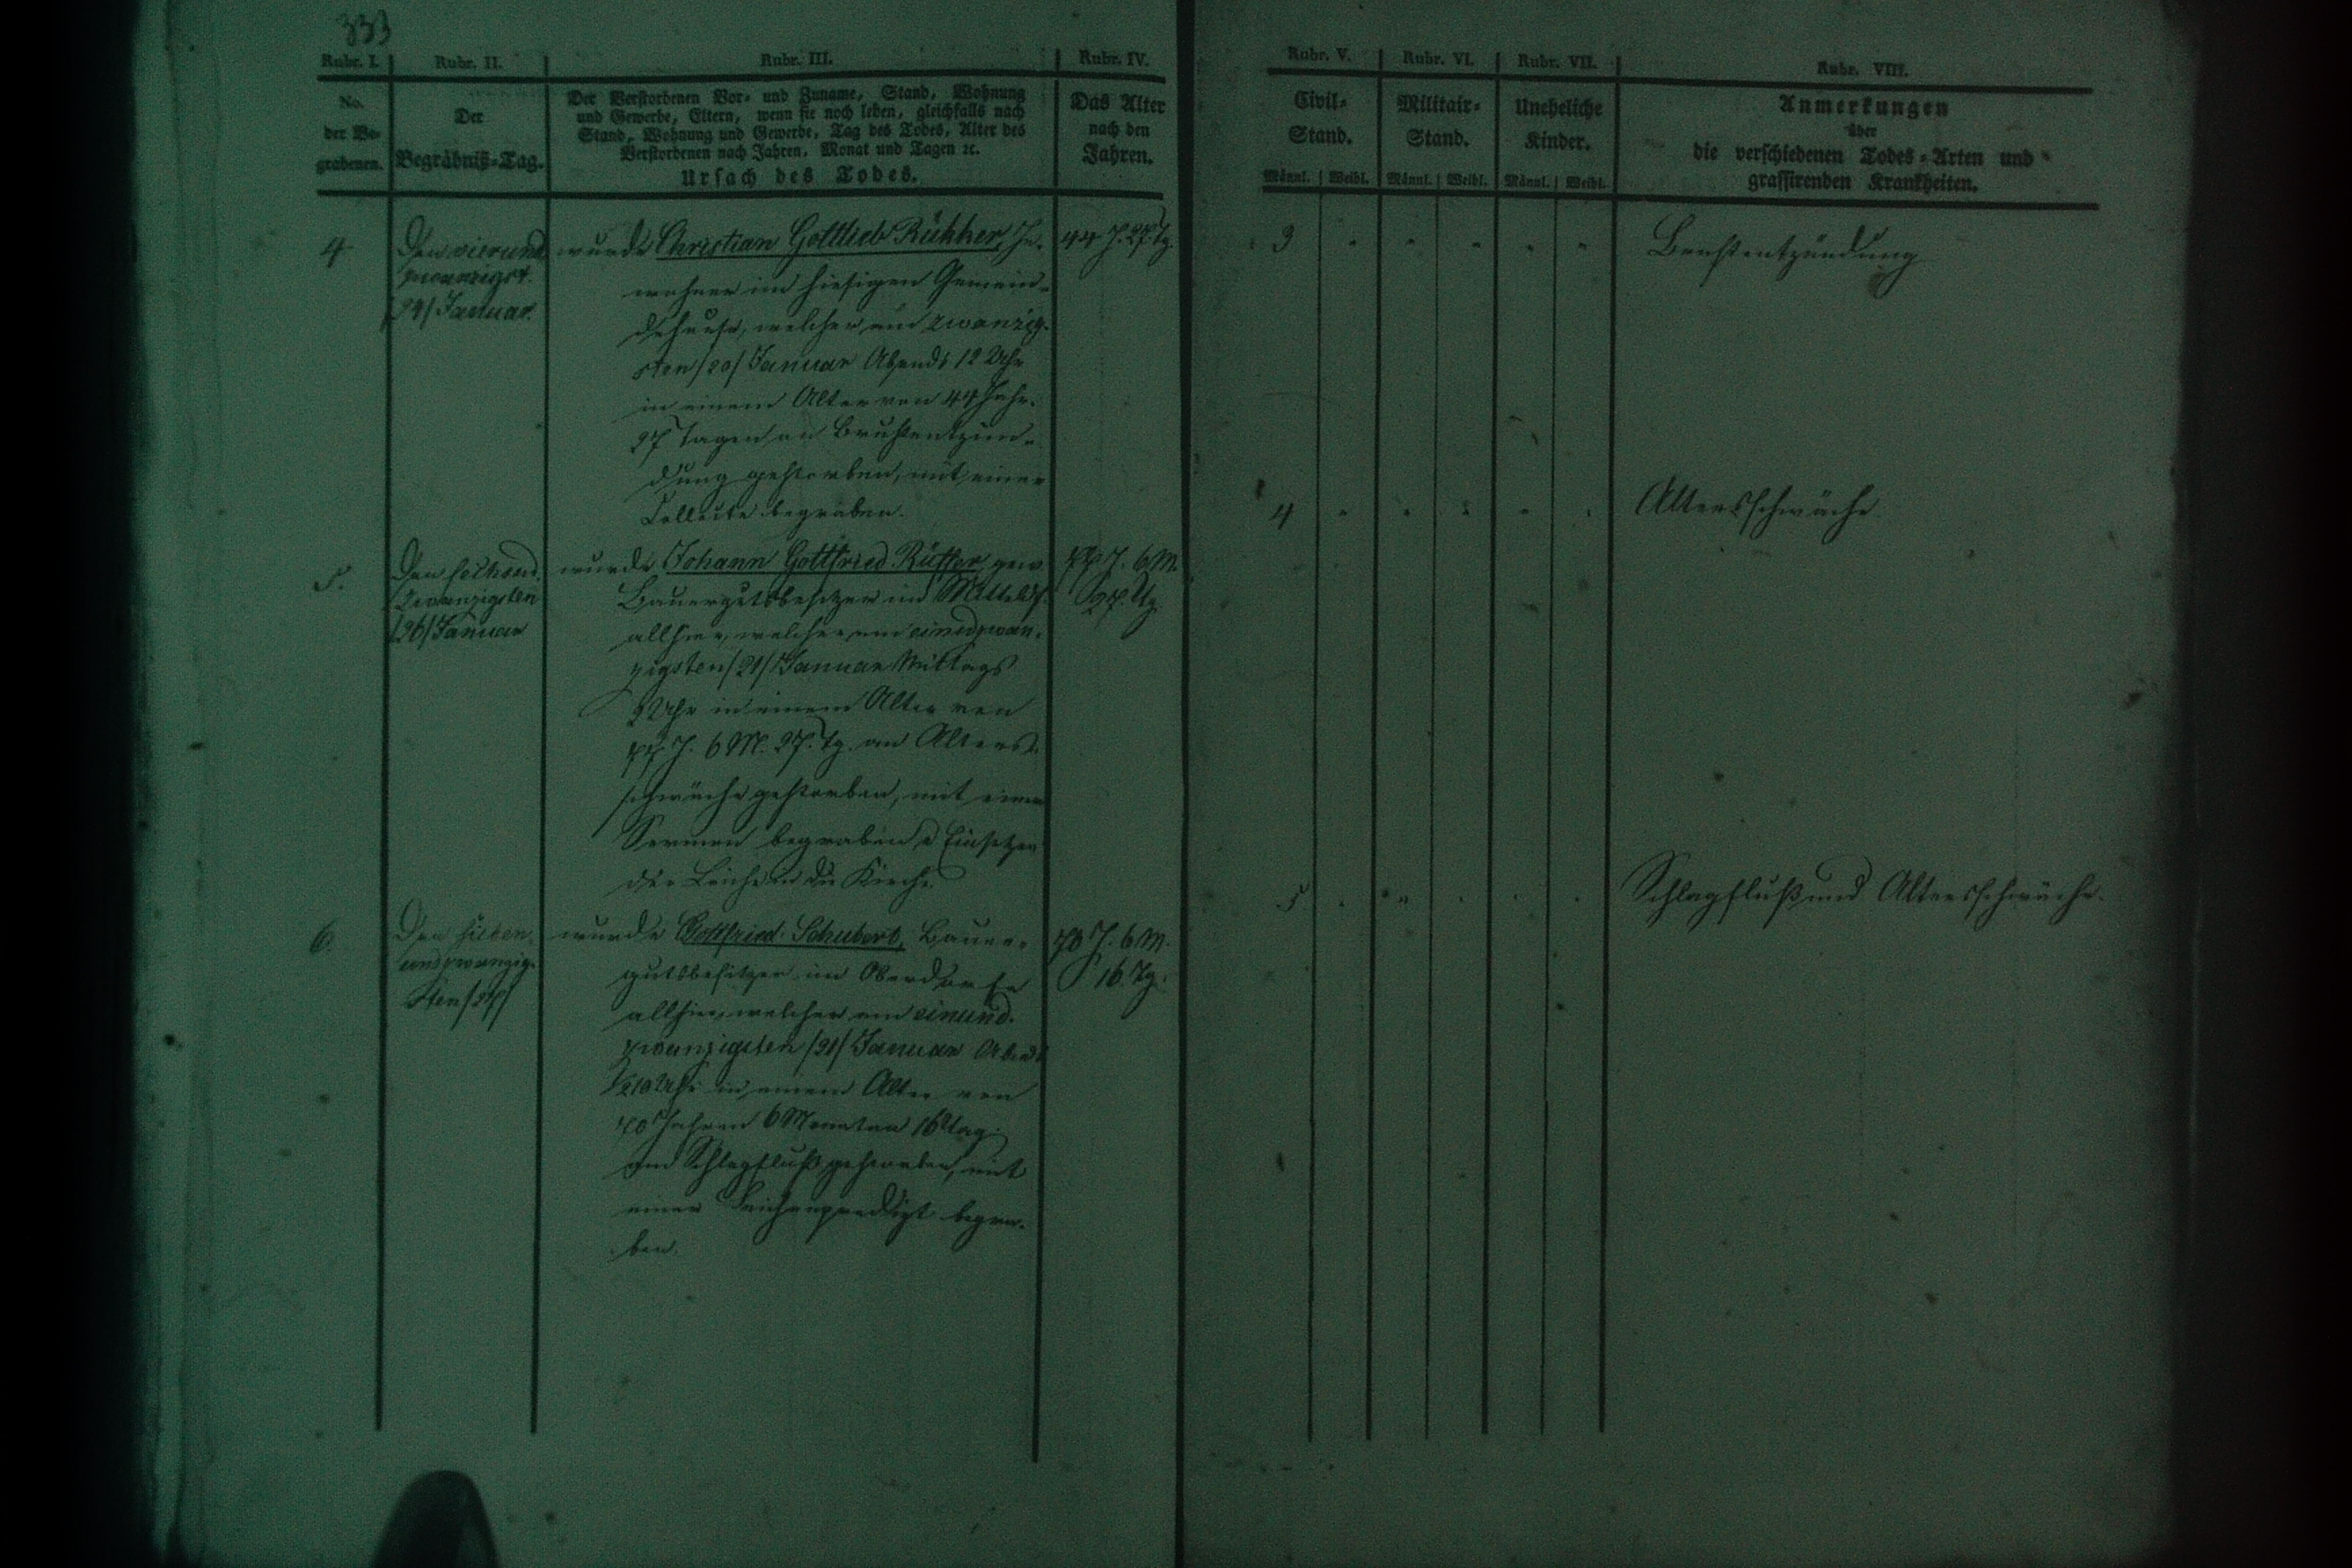 333
Rubr. I. Rubr. II. Rubr. III. Rubr. IV. Rubr. V. Rubr. VI. Rubr. VII. Rubr. VIII.
No.
der Be-
grabenen.
Der
Begräbniß-Tag.
Der Verstorbenen Vor- und Zuname, Stand, Wohnung
und Gewerbe, Eltern, wenn sie noch leben, gleichfalls nach
Stand, Wohnung und Gewerbe, Tag des Todes, Alter des
Verstorbenen nach Jahren, Monat und Tagen ꝛc.
Ursach des Todes.
Das Alter
nach den
Jahren.
Civil-
Stand.
Männl. Weibl.
Militair-
Stand.
Männl. Weibl.
Uneheliche
Kinder.
Männl. Weibl.
Anmerkungen
über
die verschiedenen Todes-Arten und
grassirenden Krankheiten.
4
Den vierund
zwanzigst.
/24/ Januar.
wurde Christian Gottlieb, In-
wohner im hiesigen Gemein-
dehause, welcher am zwanzig-
sten /20/ Januar Abends 12 Uhr
in einem Alter von 44 Jahr.
27 Tagen an Brustentzün-
dung gestorben, mit einer
Collecte begraben.
44 J. 27 Tg.
3
Brustentzündung
5.
Den sechsund
zwanzigsten
/26/ Januar
wurde Johann Gottfried, gew.
Bauergutsbesitzer im Mitteldf.
allhier, welcher am einundzwan-
zigsten /21/ Januar Mittags
Uhr in einem Alter von
77 J. 6 M. 27. Tg. an Alters-
schwäche gestorben, mit einem
Sermon begraben Einsetzen
der Leiche in die Kirche.
77 J. 6 M.
27. Tg.
4
Altersschwäche
6.
Den sieben
undzwanzig-
sten /27/
wurde Gottfried Schubert, Bauer-
gutsbesitzer im Oberdorfe
allhier, welcher am einund-
zwanzigsten /21/ Januar Abends
1/2 10 Uhr in einem Alter von
70 Jahren 6 Monaten 16 Tag.
am Schlagfluß gestorben, mit
einer Leichenpredigt begra-
ben.
70 J. 6 M.
16. Tg.
5
Schlagfluß und Altersschwäche.